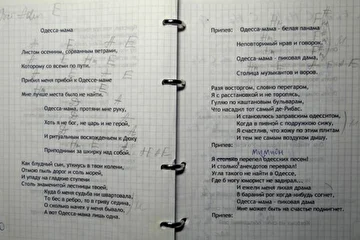 Одесса-мама
Листом осенним, сорванным ветрами,
Которому со всеми по пути,
Прибил меня прибой к Одессе-маме
Мне лучше места было не найти.
Одесса-мама, протяни мне руку,
Хоть я не бог, не царь и не герой,
И ритуальным восхожденьем к Дюку
Приподними за шкирку над собой.
Как блудный сын, уткнусь в твои колени,
Отмою пыль дорог и соль морей,
И упаду на гладкие ступени
Столь знаменитой лестницы твоей.
Куда б меня судьба ни швартовала,
То бес в ребро, то в гриву седина,
О скольких мамок у меня бывало,
А вот Одесса-мама лишь одна.
Припев: Одесса-мама - белая панама
Неповторимый нрав и говорок,
Одесса-мама - пиковая дама,
Столица музыкантов и воров.
Разя восторгом, словно перегаром,
Я с расстановкой и не торопясь,
Гуляю по каштановым бульварам,
Что насадил тот самый де-Рибас.
И становлюсь заправским одесситом,
Когда в пивной с подружкою сижу,
Я счастлив, что хожу по этим плитам
И тем же самым воздухом дышу.
Припев:
Я столько перепел одесских песен!
И столько анекдотов перевирал!
Угла такого не найти в Одессе,
Где б ногу юморист не задирал...
И ежели меня лихая драма
В бараний рог когда-нибудь согнет,
Одесса-мама - пиковая дама
Мне может быть на счастье подмигнет.
Припев: